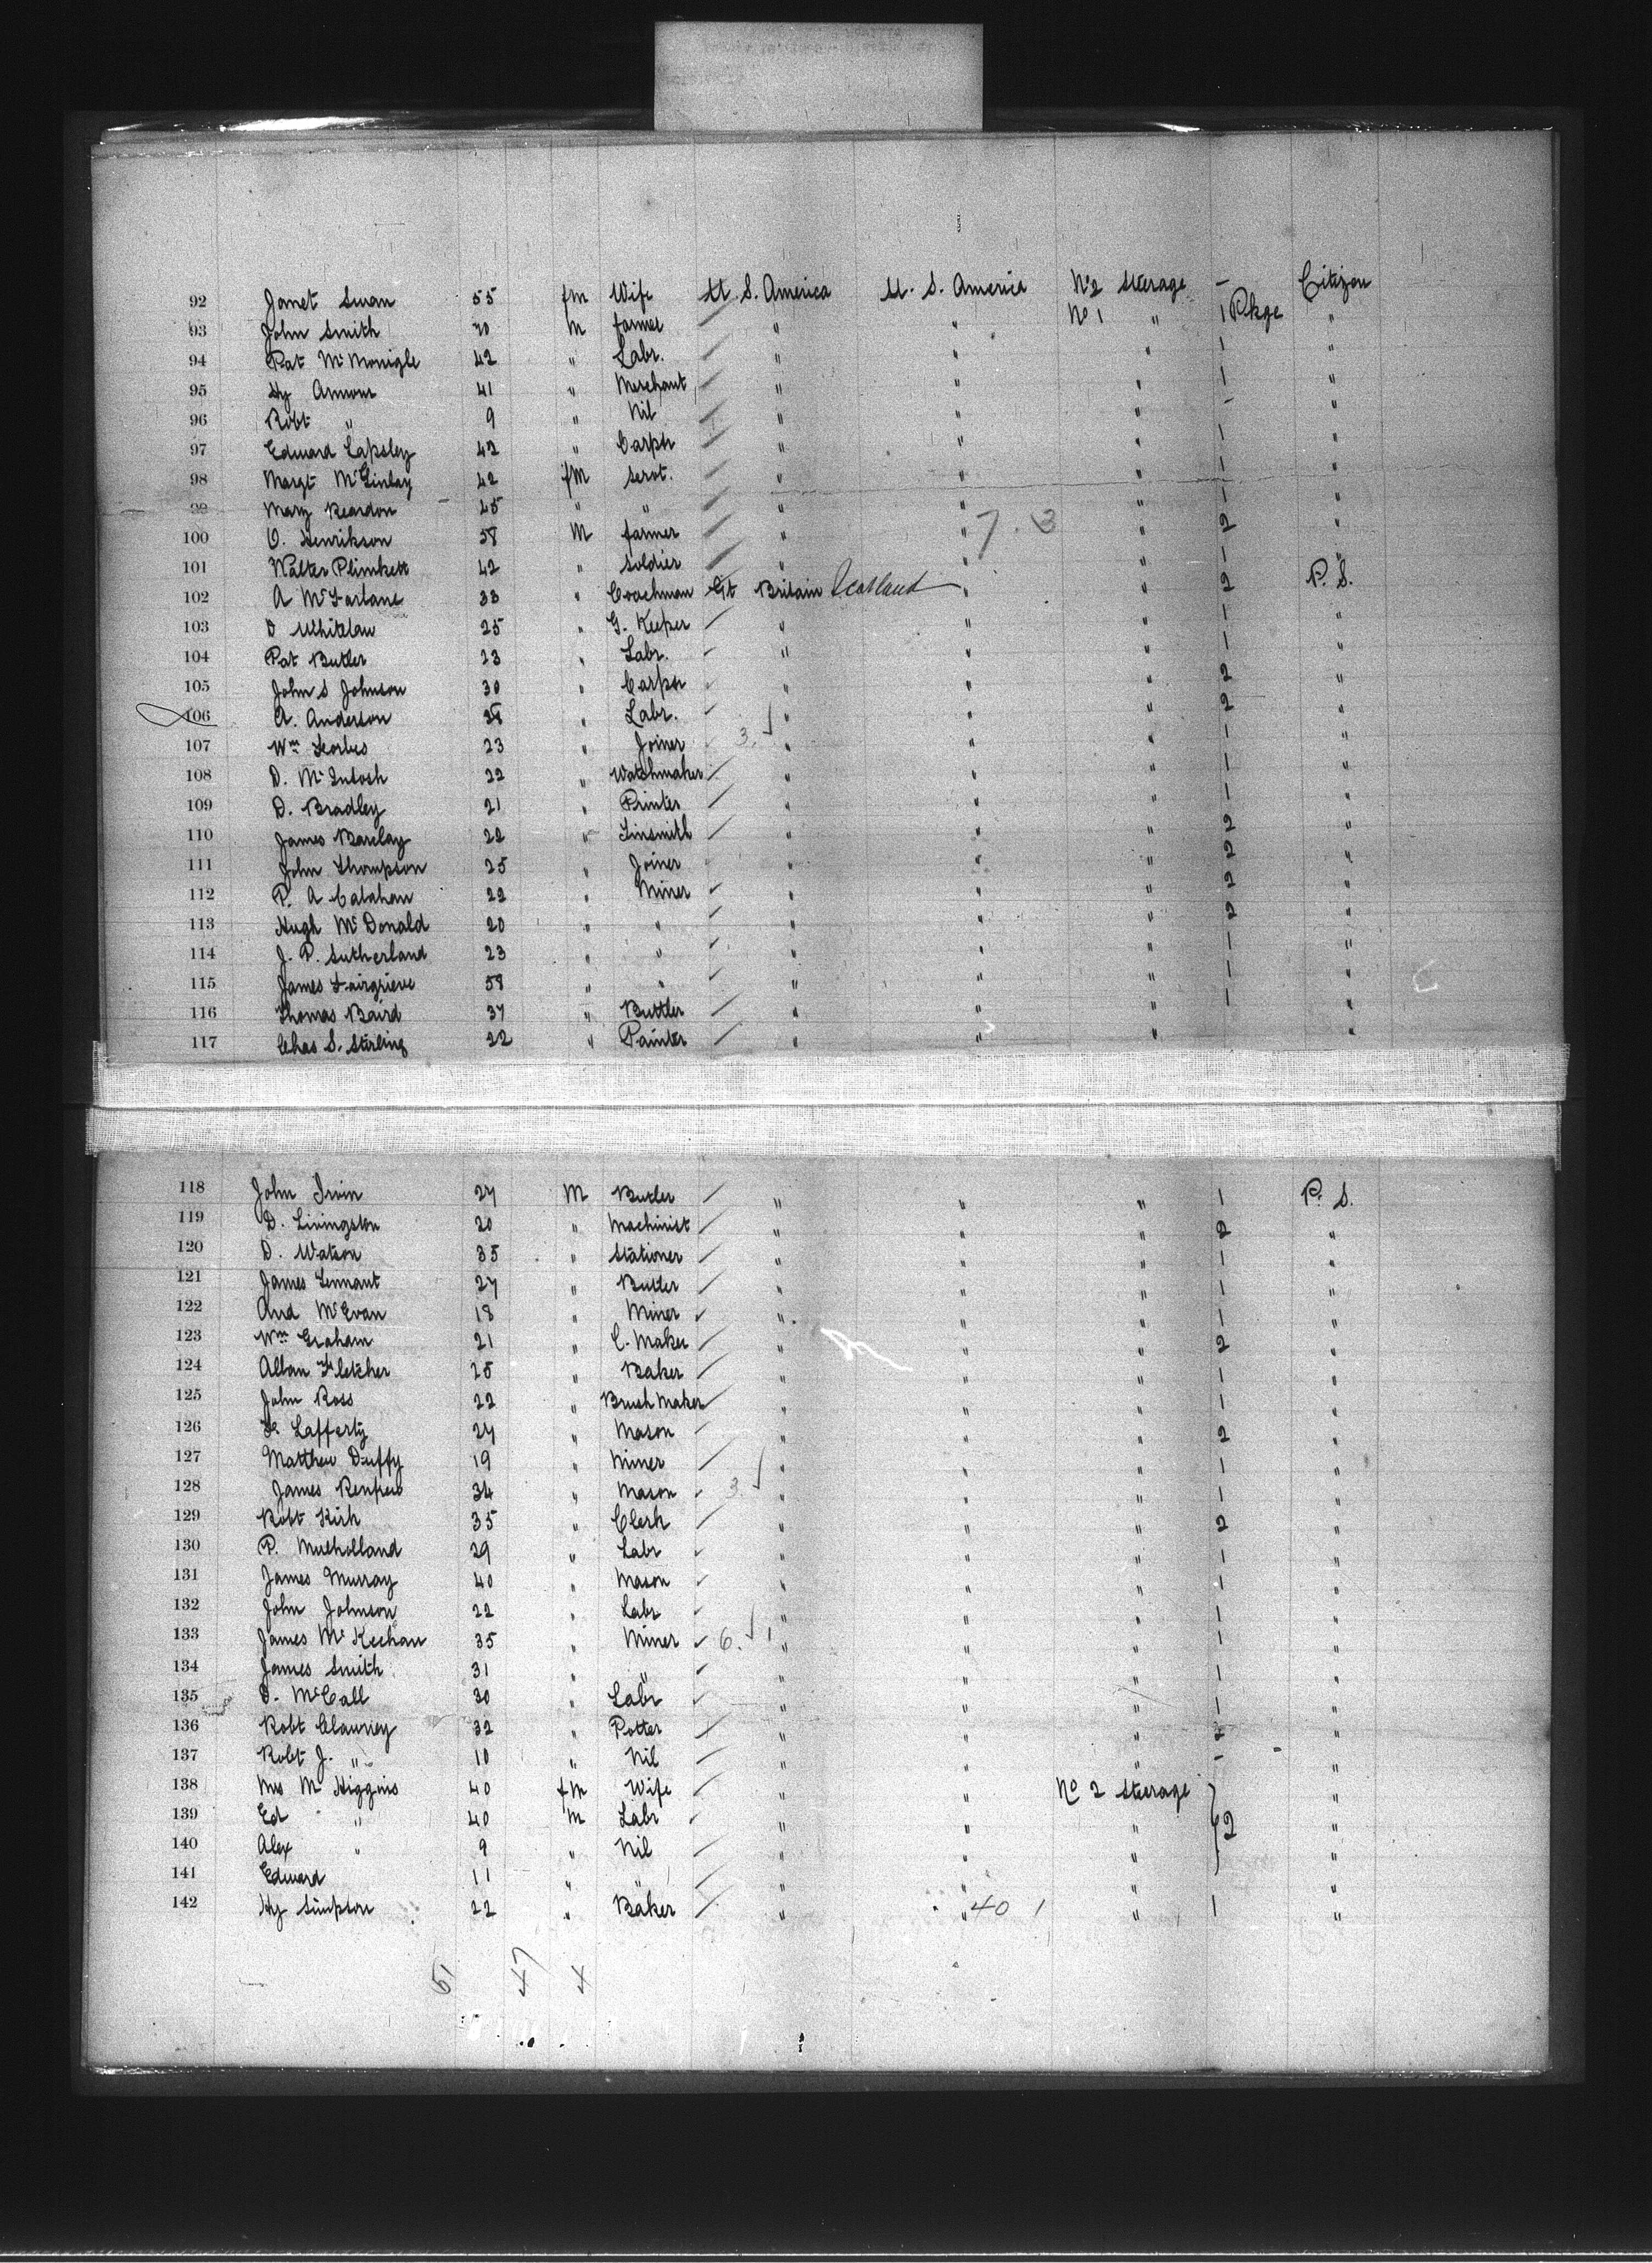 92 Janet Swan 55 fm Wife U. S. America U. S. America No 2 Steerage - Citizen
93 John Smith 70 M farmer " " No 1 " 1 Pkge "
94 Pat McMonigle 42 " Labr. " " " 1 "
95 Hy Armour 41 " Merchant " " " 1 "
96 Robt " 9 " Nil " " " - "
97 Edward Lapsley 42 " Carptr " " " 1 "
98 Margt McGinlay 42 fm Servt. " " " 1 "
99 Mary Reardon 45 " " " " " 1 "
100 O. Henrikson 58 M farmer " " 7. 3 " 2 "
101 Walter Plimkett 42 " Soldier " " " 1 "
102 A McFarlane 33 " Coachman Gt Britain Scotland " " 2 P. S.
103 D Whitelaw 25 " G. Keeper " " " 1 "
104 Pat Butler 23 " Labr. " " " 1 "
105 John S Johnson 30 " Carptr " " " 2 "
106 A. Anderson 28 " Labr. " " " 2 "
107 Wm Forbes 23 " Joiner 3. " " " 1 "
108 D. McIntosh 22 " Watchmaker " " " 1 "
109 D. Bradley 21 " Printer " " " 1 "
110 James Barclay 22 " Tinsmith " " " 2 "
111 John Thompson 25 " Joiner " " " 2 "
112 P. A Calahan 22 " Miner " " " 2 "
113 Hugh McDonald 20 " " " " " 2 "
114 J. P. Sutherland 23 " " " " " 1 "
115 James Fairgrieve 58 " " " " " 1 "
116 Thomas Baird 37 " Buttler " " " 1 "
117 Chas S. Stirling 22 " Painter " " " "
118 John Irvin 27 M Butler " " " 1 P. S.
119 D. Livingston 20 " Machinist " " " 2 "
120 D. Watson 35 " Stationer " " " 1 "
121 James Tennant 27 " Butler " " " 1 "
122 And McEvan 18 " Miner " " " 1 "
123 Wm Graham 21 " C. Maker " " " 2 "
124 Allan Fletcher 25 " Baker " " " 1 "
125 John Ross 22 " Brush Maker " " " 1 "
126 Lafferty 27 " Mason " " " 2 "
127 Matthew Duffy 19 " Miner " " " 1 "
128 James Renfrew 34 " Mason 3. " " " 1 "
129 Robt Kirk 35 " Clerk " " " 2 "
130 P. Mulholland 29 " Labr " " " 1 "
131 James Murray 40 " Mason " " " 1 "
132 John Johnson 22 " Labr " " " 1 "
133 James McKeehan 35 " Miner 6. 1 " " " 1 "
134 James Smith 31 " " " " " 1 "
135 D. McCall 30 " Labr " " " 1 "
136 Robt 32 " Potter " " " 2 "
137 Robt J. " 10 " Nil " " " - "
138 Mrs M Higgins 40 fm Wife " " No 2 Steerage "
139 Ed " 40 M Labr " " " 2 "
140 Alex " 9 " Nil " " " "
141 Edward 11 " " " " " "
142 Hy Simpson 22 " Baker " " 40 1 " 1 "
51 47 4